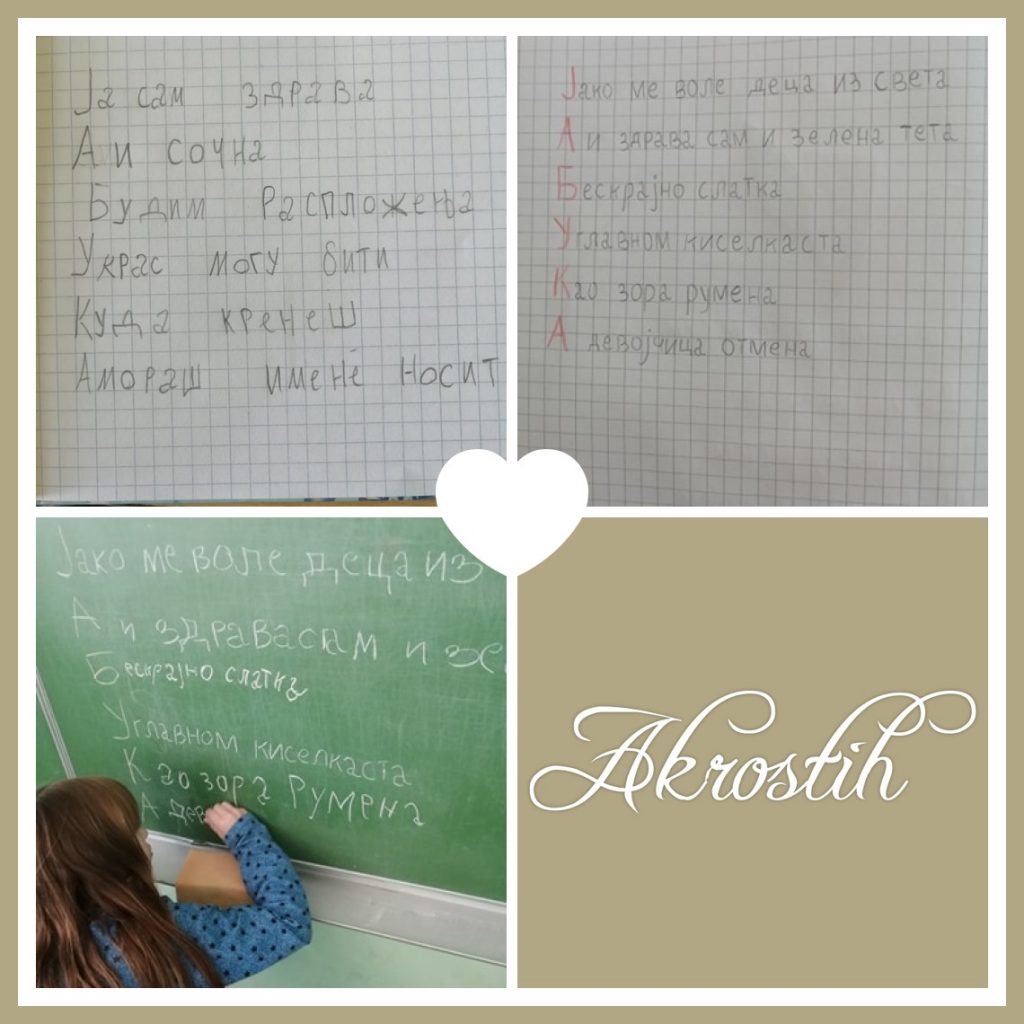 Ја сам здрава
А и сочна
Будим Расположења
Украс могу бити
Куда кренеш
Амораш имене носит
Јако ме воле деца из света
А и здрава сам и зелена тета
Бескрајно слатка
Углавном киселкаста
Као зора румена
А девојчица отмена
Јако ме воле деца из
А и здрава сам и зе
Бескрајно слатка
Углавном киселкаста
Као зора Румена
А дев
Akrostih